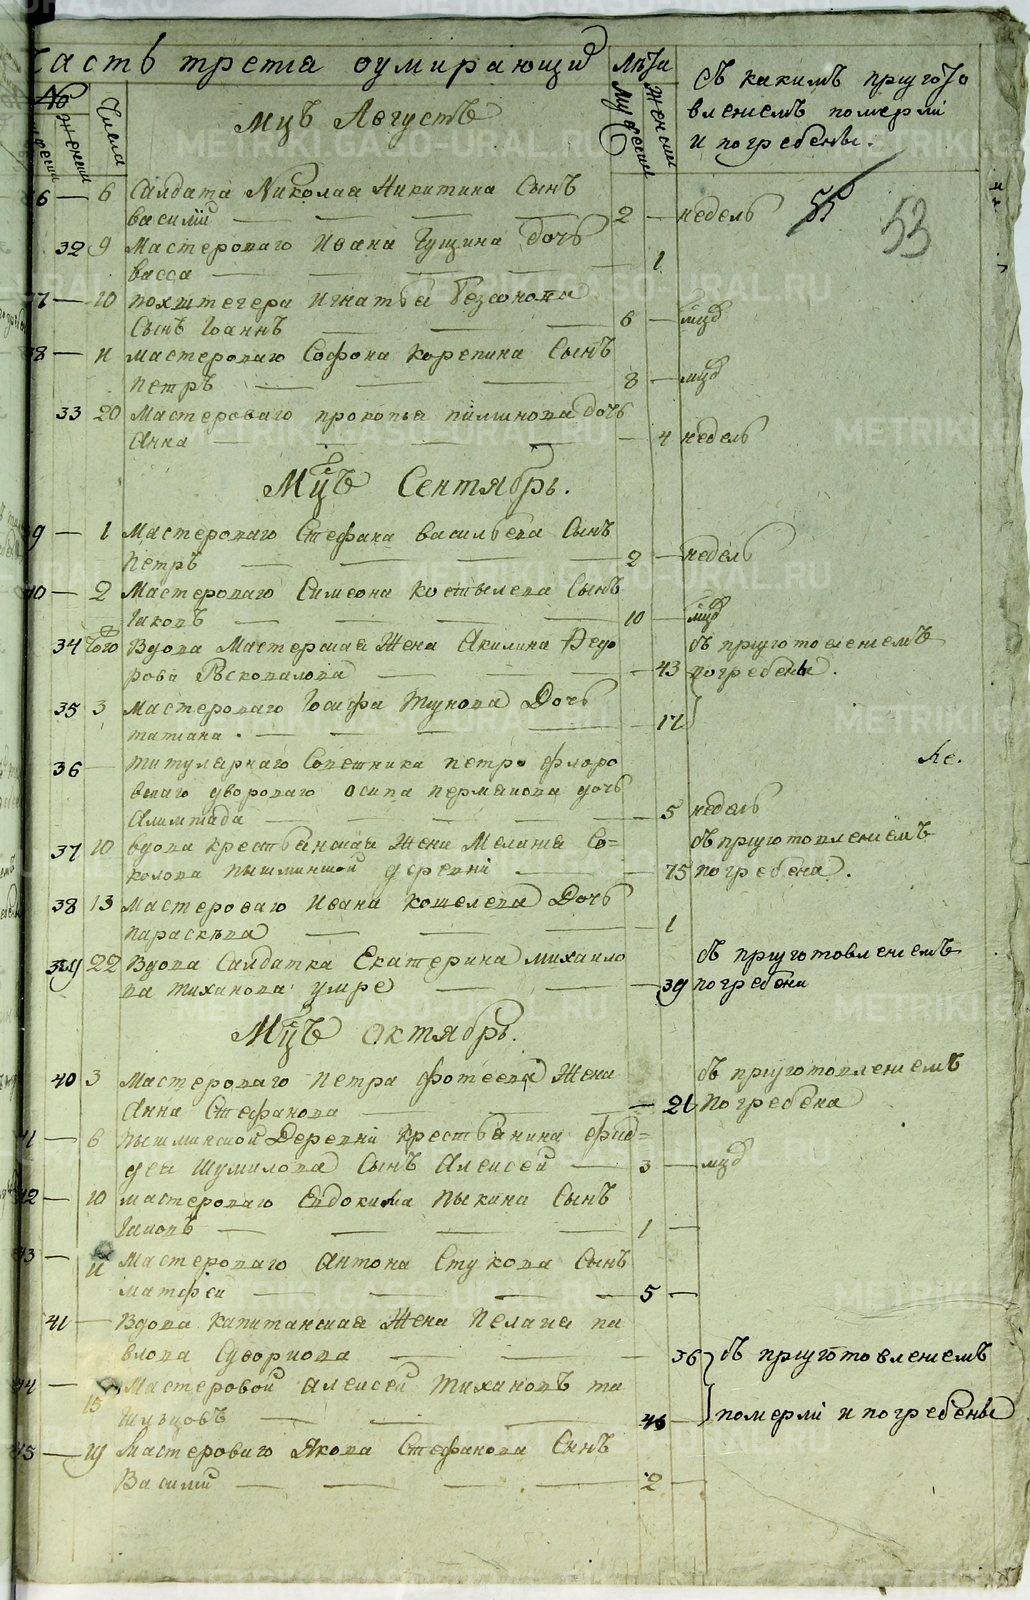 Часть третія оумирающихъ
Лѣта
Съ какимъ пригото
вленіемъ померли
и погребены.
№
Мужески
Женски
Числа
Мцъ Августъ
Мужески
Женски
36 — 6 Салдата Николая Никитина Сынъ
василій — 2 — недель
55
53
32 9 Мастероваго Ивана Гущина дочь
васса — 1
37 — 10 похштегера Игнатья Безсонова
Сынъ Іоаннъ — 6 — мцъ
38 — 11 мастероваго Софона Корепина Сынъ
петръ — 8 — мцъ
33 20 Мастероваго прокопья дочь
Анна — 4 недель
Мцъ Сентябрь.
39 — 1 Мастероваго Стефана васильева Сынъ
петръ — 2 — недель
40 — 2 Мастероваго Симеона Костылева Сынъ
Іаковъ — 10 — мцъ
34 Вдова Мастерская Жена Акилина Федо
рова — 43
съ приготовленіемъ
погребены.
35 3 Мастероваго Іосифа Дочь
татіана. — 17
36 — титулярнаго Советника петра флоро
вскаго двороваго осипа перманова дочь
— 5 недель
Ае.
37 10 вдова крестьянская Жена Меланія Со=
колова пышминской деревни — 75
съ приготовленіемъ
погребена.
38 13 Мастероваго Ивана кошелева Дочь
параскѣва — 1
39 22 Вдова Салдатка Екатерина михаило
ва тиханова умре — 39
съ приготовленіемъ
погребена
Мцъ октябрь.
40 3 Мастероваго петра фотеева Жена
Анна Стефанова — 21
съ приготовленіемъ
погребена
41 — 6 пышминской Деревни крестьянина
Шумилова Сынъ Алексей — 3 — мцъ
42 — 10 мастероваго Евдокима пыкина Сынъ
Іаковъ — 1 —
43 — 11 Мастероваго Антона Стукова Сынъ
матфей — 5 —
41 — Вдова капитанская Жена пелагия па
влова Суворкова — 36
съ приготовленіемъ
44 — 15 Мастеровой Алексей тихановъ та
— 46 —
померли и погребены
45 — 19 Мастероваго Якова Стефанова Сынъ
Василій — 2 —